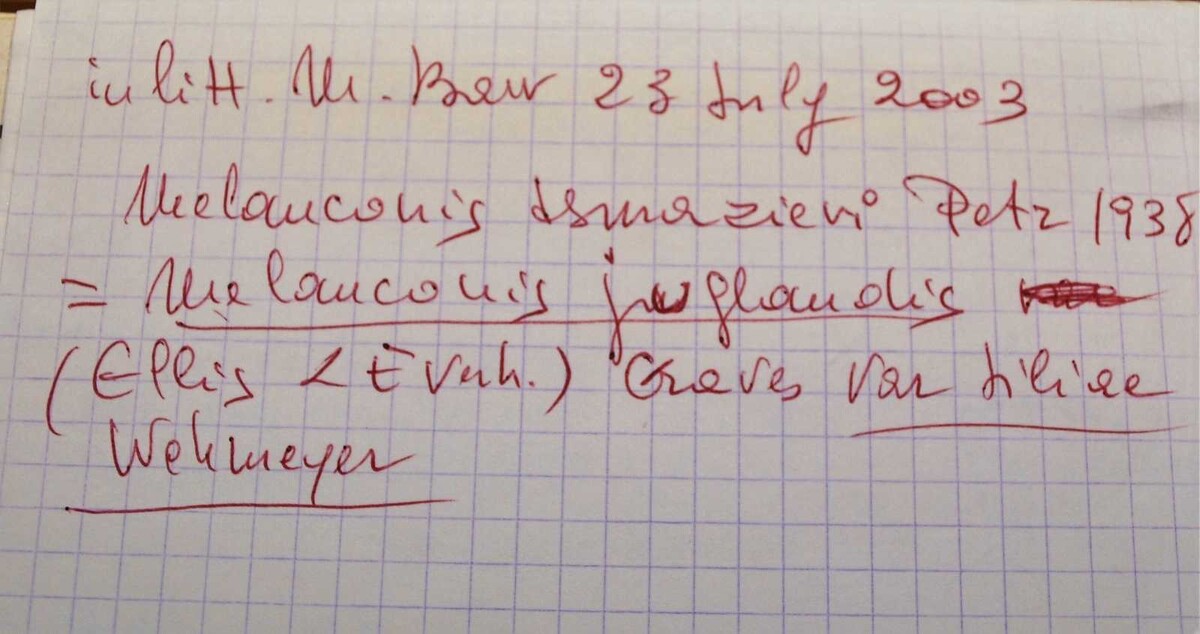 in litt. M. Barr 23 July 2003
Melanconis desmazieri Petr 1938
= Melanconis juglandis
(Ellis & Everh.) Graves var tiliae
Wehmeyer